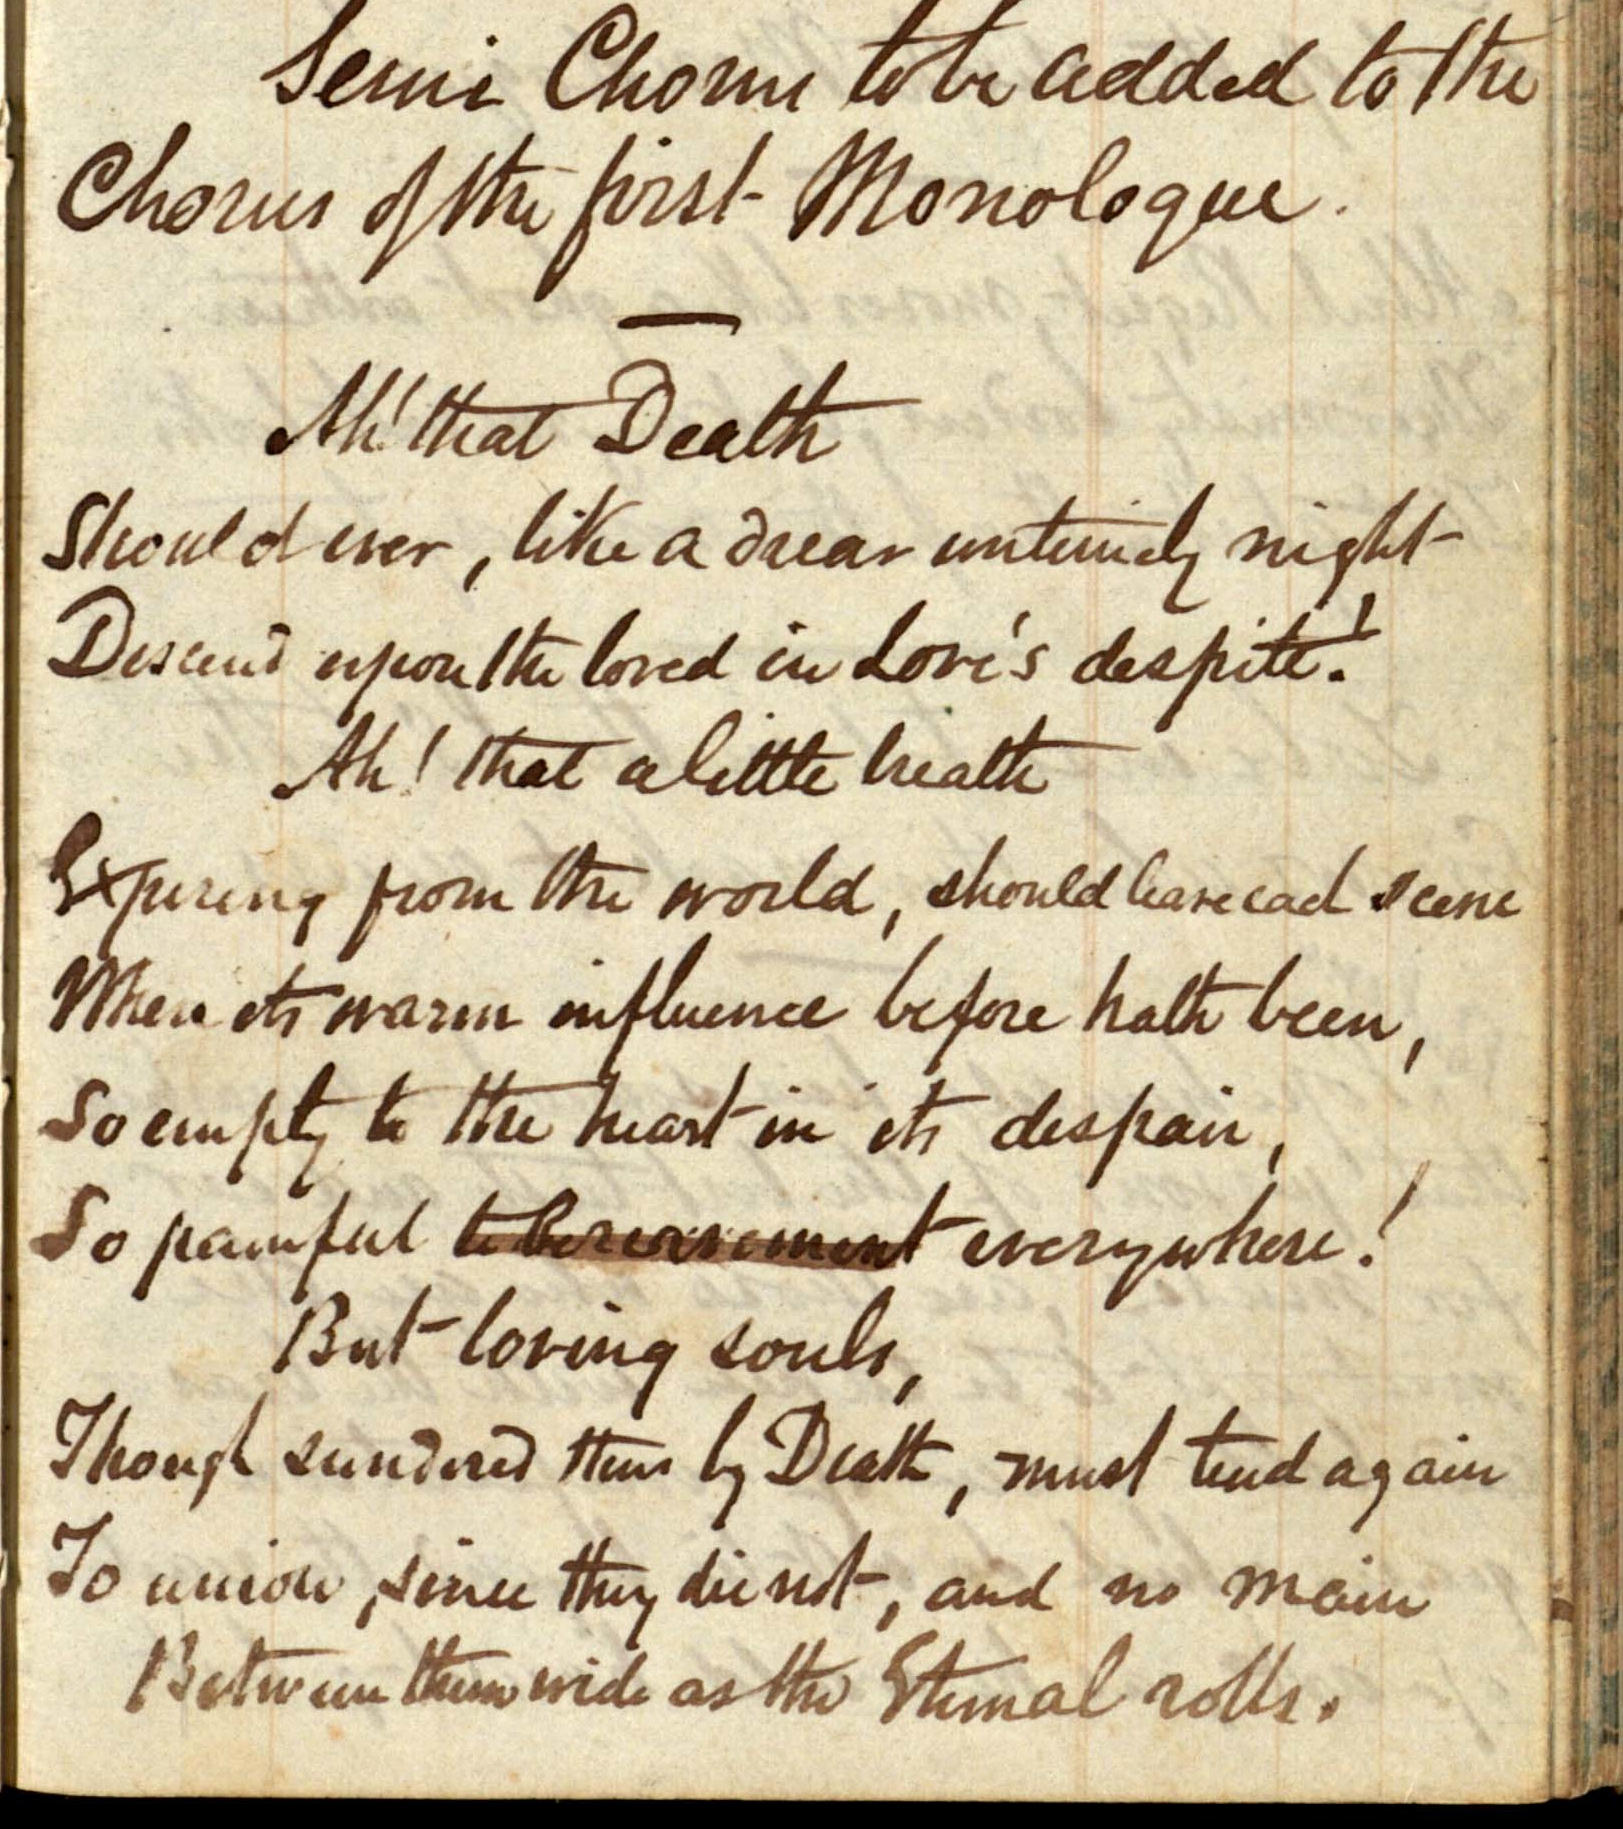 Semi Chorus to be added to the
Chorus of the first Monologue.
Ah! that Death
Should ever, like a drear untimely night
Descend upon the loved in Love's despite!
Ah! that a little breath
Expiring from the world, should leave each scene
Where its warm influence before hath been,
So empty to the heart in its despair,
So painful to bereavement everywhere!
But loving souls,
Though sundered thus by Death, must tend again
To union, since they die not, and no main
Between them wide as the Eternal rolls.